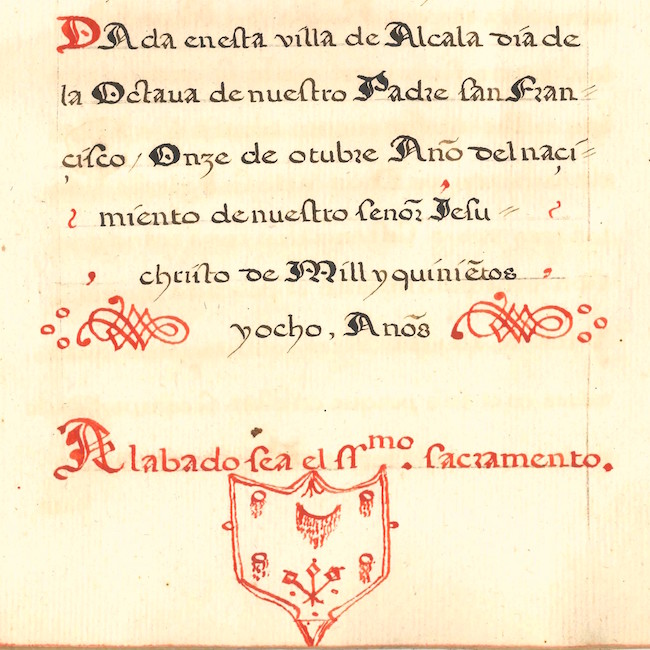 DAda enesta villa de Alcala dia de
la Octaua de nuestro Padre san Fran=
cisco, Onze de otubre Año del naci=
miento de nuestro señor Jesu=
christo de Mill y quiniẽtos
y ocho, Años
Alabado sea el ssmo. sacramento.